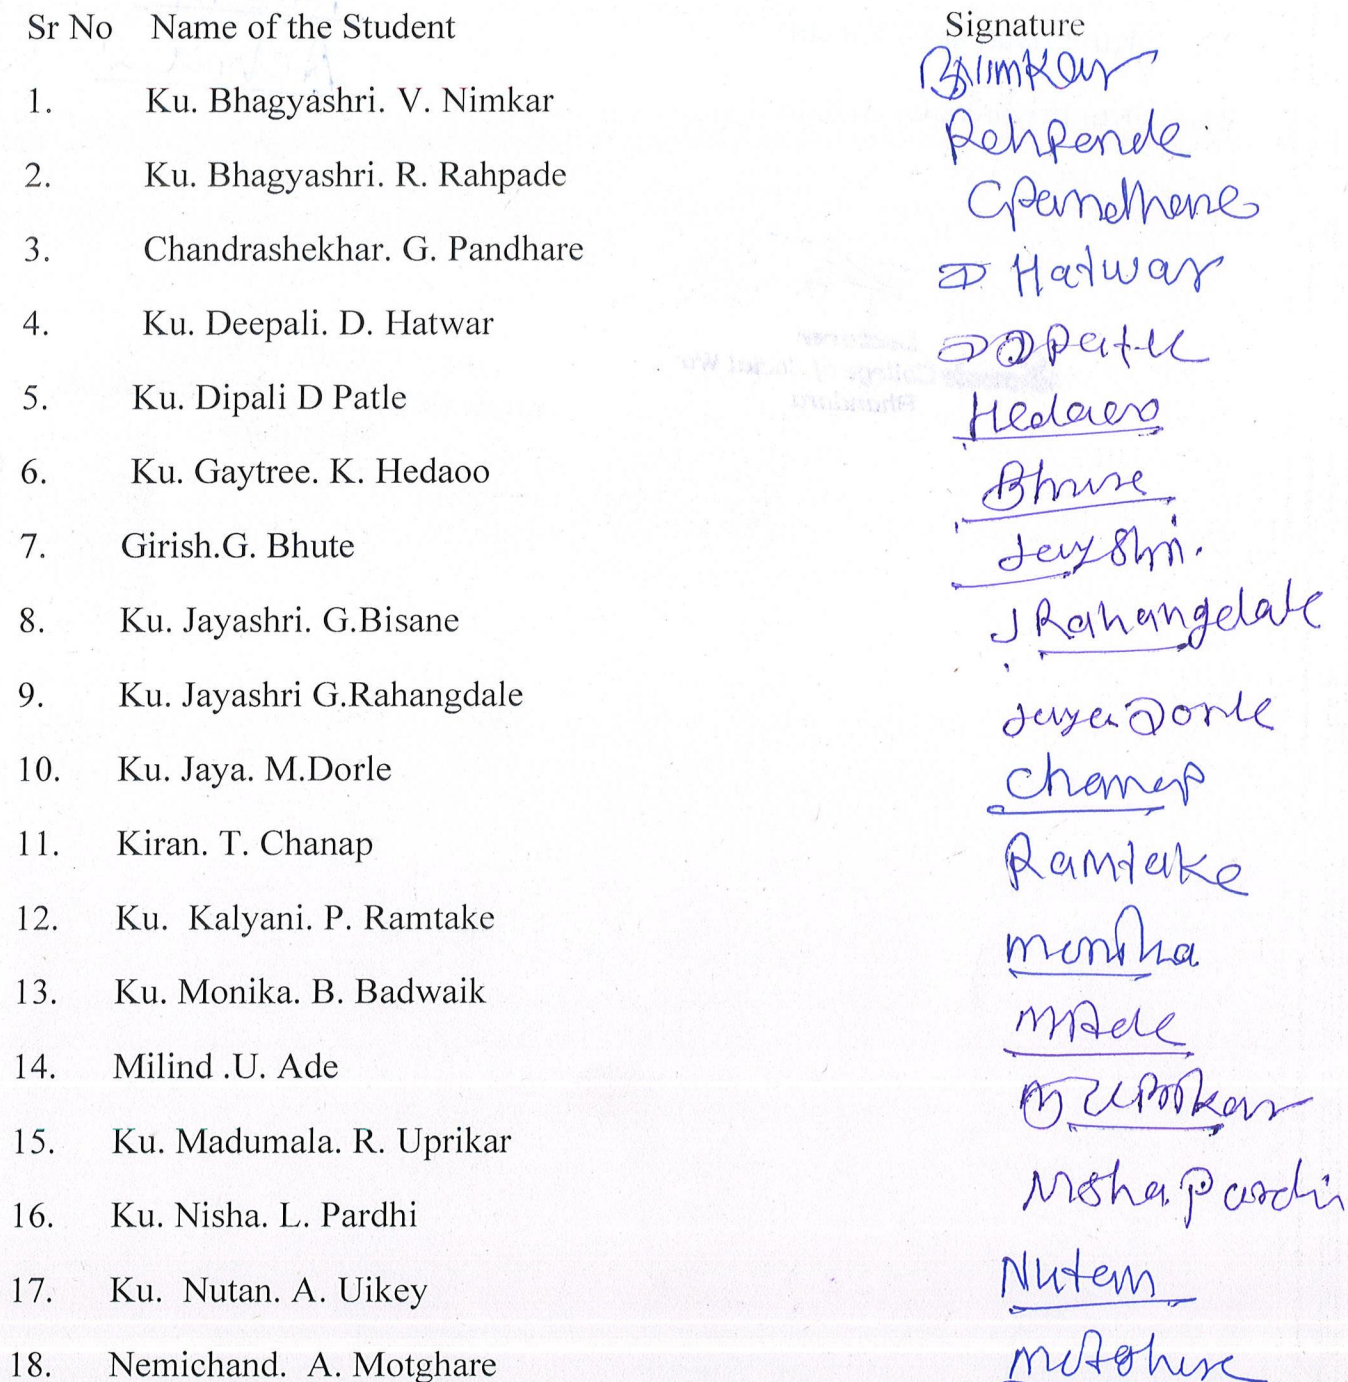 Sr No Name of the Student Signature
1. Ku. Bhagyashri. V. Nimkar BNimkar
2. Ku. Bhagyashri. R. Rahpade Rehpende
3. Chandrashekhar. G. Pandhare CPandhare
4. Ku. Deepali. D. Hatwar D Hatwar
5. Ku. Dipali D Patle DDPatle
6. Ku. Gaytree. K. Hedaoo Hedaoo
7. Girish.G. Bhute Bhute
8. Ku. Jayashri. G.Bisane Jayshri.
9. Ku. Jayashri G.Rahangdale J Rahangdale
10. Ku. Jaya. M.Dorle Jaya Dorle
11. Kiran. T. Chanap Chanap
12. Ku. Kalyani. P. Ramtake Ramtake
13. Ku. Monika. B. Badwaik monika
14. Milind .U. Ade MAde
15. Ku. Madumala. R. Uprikar M Uprikar
16. Ku. Nisha. L. Pardhi Nisha Pardhi
17. Ku. Nutan. A. Uikey Nutan
18. Nemichand. A. Motghare Motghare